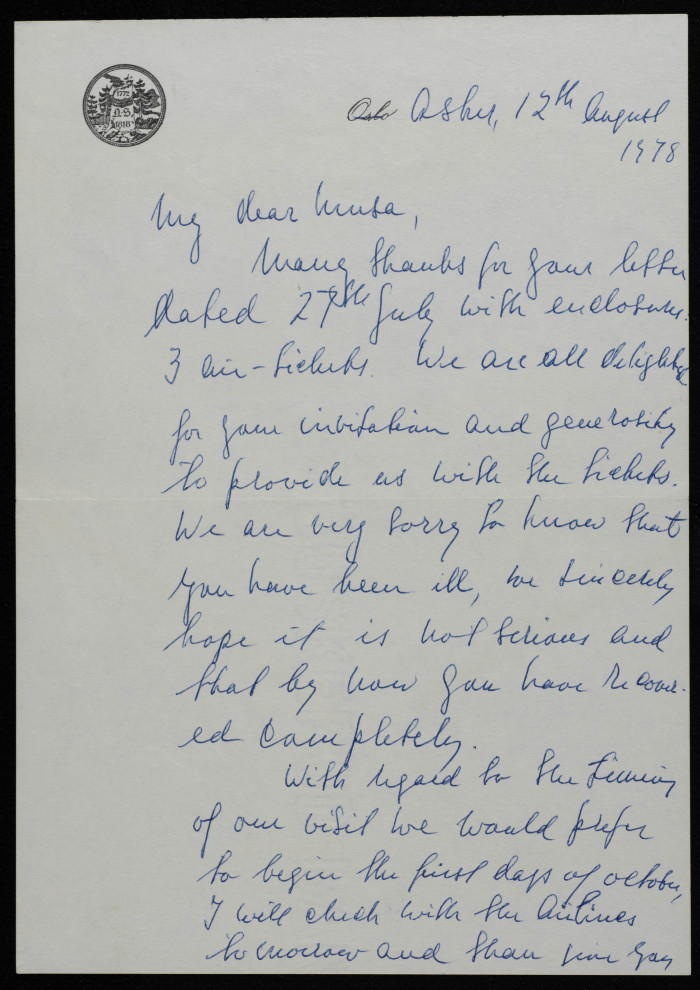 1772
N.S.
1818
Oslo Asker, 12th August
1978
My dear Musa,
Many thanks for your letter
dated 27th July with enclosures:
3 air-tickets. We are all delighted
for your invitation and generosity
to provide us with the tickets.
We are very sorry to know that
you have been ill, we sincerely
hope it is not serious and
that by now you have recover-
ed completely.
With regard to the timing
of our visit we would prefer
to begin the first days of october,
I will check with the Airlines
tomorrow and than give you